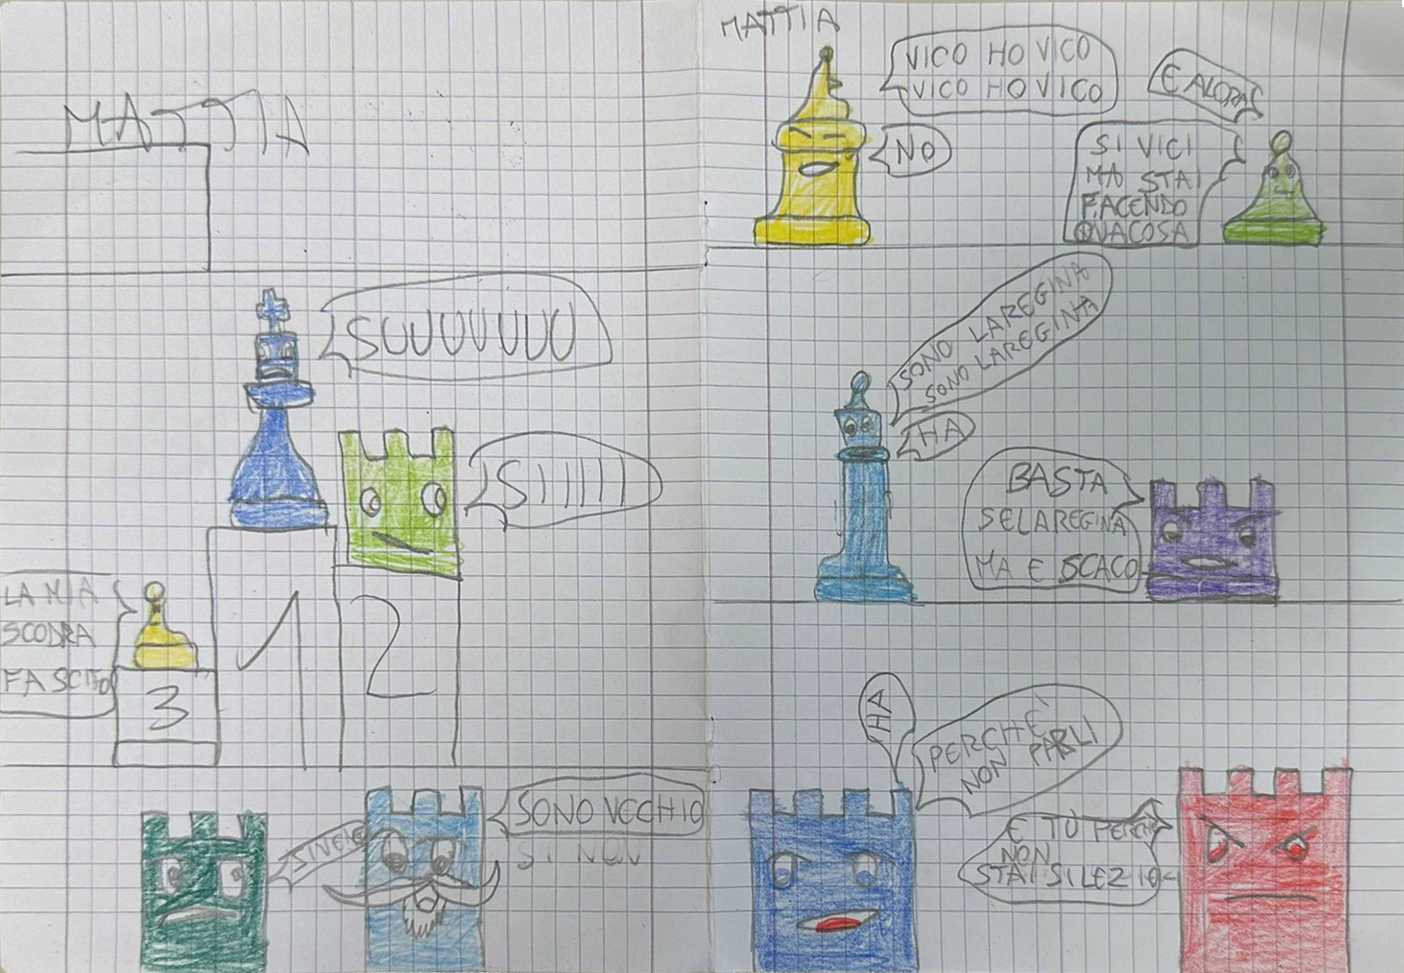 MATTIA
SUUUUUUU
SIIIII
LA MIA
SCODRA
FA SCITO
1
2
3
SONO VECHIO
SI NOU
MATTIA
VICO HO VICO
VICO HO VICO
NO
E ALORA
SI VICI
MA STAI
FACENDO
QUACOSA
SONO LAREGINA
SONO LAREGINA
HA
BASTA
SELAREGINA
MA E SCACO
HA
PERCHÈ
NON PARLI
E TU PERCHE
NON
STAI SILEZIO